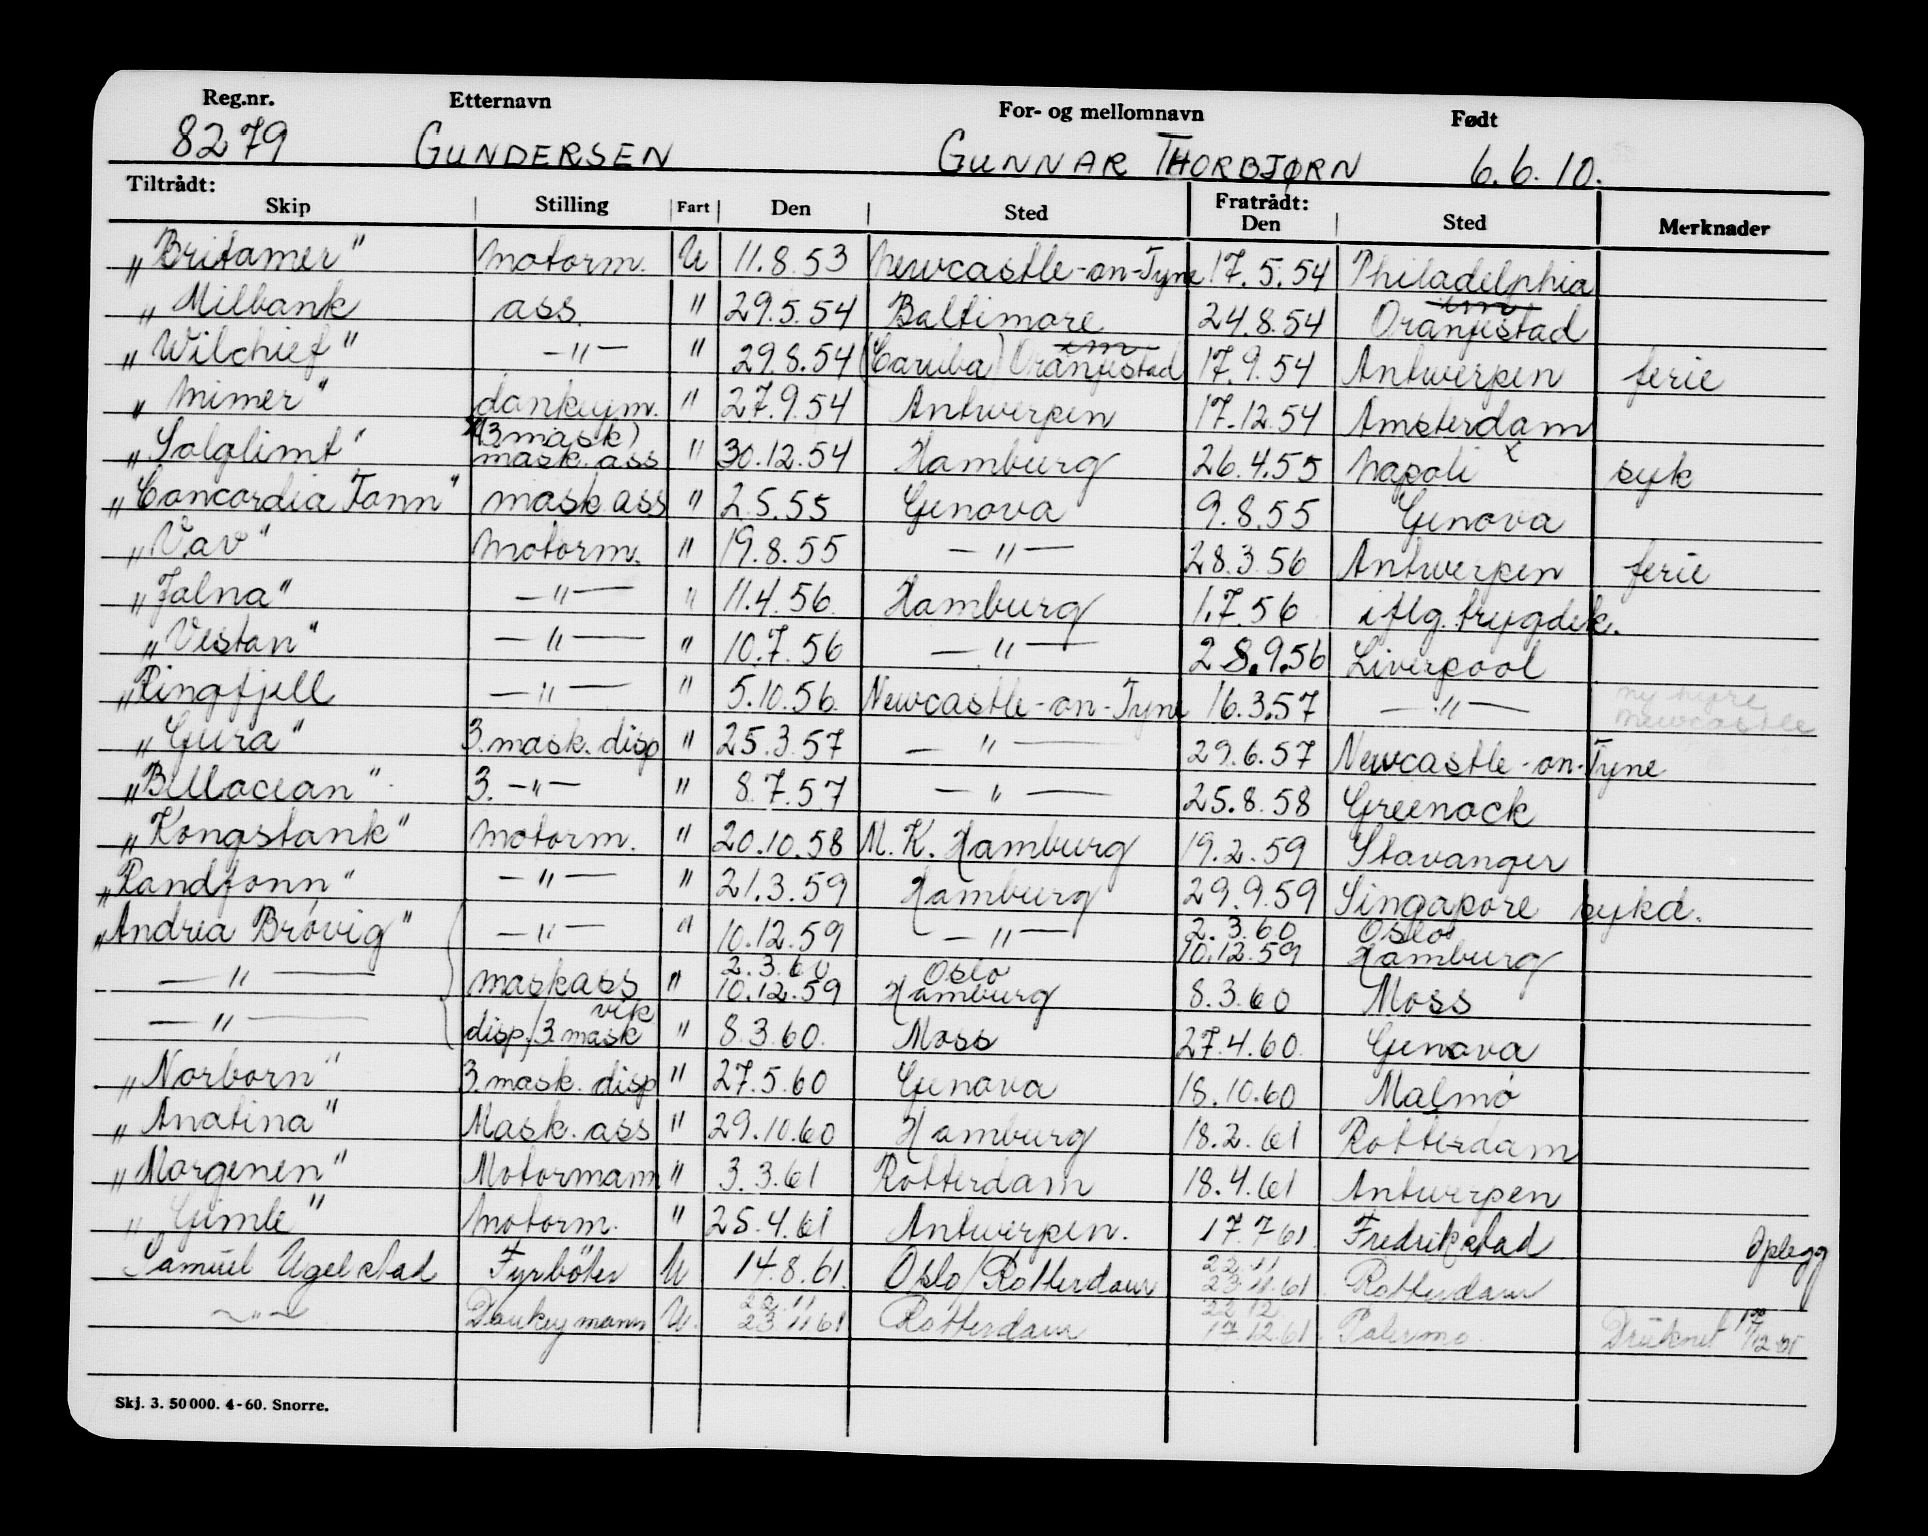 Reg.nr. Etternavn For- og mellomnavn Født
8279 GUNDERSEN GUNNAR THORBJØRN 6.6.10.
Tiltrådt: Fratrådt:
Skip Stilling Fart Den Sted Den Sted Merknader
„Britamer" Motorm. U 11.8.53 Newcastle-on-Tyne 17.5.54 Philadelphia
„Milbank ass. " 29.5.54 Baltimore 24.8.54 Oranjestad
„Wilchief" —"— " 29.8.54 (Caruba) Oranjestad 17.9.54 Antwerpen ferie
„Mimer" dankeym. " 27.9.54 Antwerpen 17.12.54 Amsterdam
„Solglimt" (3 mask) mask. ass " 30.12.54 Hamburg 26.4.55 Napoli x syk
„Concordia Fonn" mask ass " 2.5.55 Genova 9.8.55 Genova
„Vav" Motorm. " 19.8.55 —"— 28.3.56 Antwerpen ferie
„Jalna" —"— " 11.4.56 Hamburg 1.7.56 iflg. trygdek.
„Vestan" —"— " 10.7.56 —"— 28.9.56 Liverpool
„Ringfjell —"— " 5.10.56 Newcastle-on-Tyne 16.3.57 —"— ny hyre Newcastle
„Gura" 3. mask. disp " 25.3.57 —"— 29.6.57 Newcastle-on-Tyne
„Bellocean" 3. —"— " 8.7.57 —"— 25.8.58 Greenock
„Kongstank" Motorm. " 20.10.58 M.K. Hamburg 19.2.59 Stavanger
„Randfonn" —"— " 21.3.59 Hamburg 29.9.59 Singapore sykd.
„Andrea Brøvig" —"— " 10.12.59 —"— 2.3.60 10.12.59 Oslo Hamburg
—"— mask ass " 2.3.60 10.12.59 Oslo Hamburg 8.3.60 Moss
—"— disp/3. mask vik " 8.3.60. Moss 27.4.60. Genova
„Norborn" 3. mask. disp " 27.5.60 Genova 18.10.60 Malmø
„Anatina" Mask. ass " 29.10.60 Hamburg 18.2.61 Rotterdam
„Morgenen" Motormann " 3.3.61 Rotterdam 18.4.61 Antwerpen
„Gimle" Motorm. " 25.4.61 Antwerpen. 17.7.61. Fredrikstad Oplegg
Samuel Ugelstad Fyrbøter U 14.8.61. Oslo/Rotterdam 22.11 23.11.61 Rotterdam
—"— Donkeymann U. 22.11 23.11.61 Rotterdam 22.12 17.12.61. Palermo. Druknet 17/12-61
Skj. 3. 50000. 4-60. Snorre.